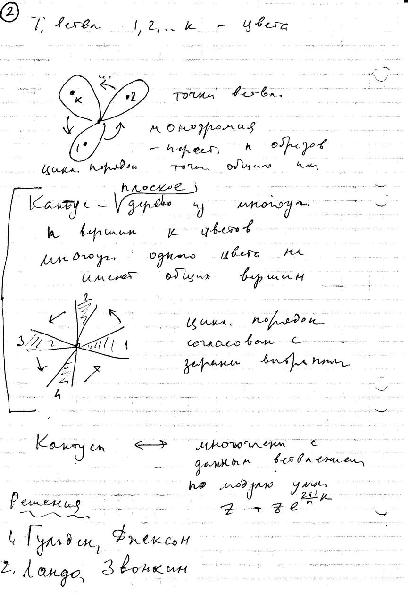 2
т. ветвл. 1, 2, .. k - цвета
k
2
1
точки ветвл.
монодромия
- перест. n образов
цикл. порядок точки общего пол.
плоское
Кактус - дерево из многоуг.
n вершин k цветов
многоуг. одного цвета не
имеют общих вершин
2
3
1
4
цикл. порядок
согласован с
заранее выбранным
Кактусы ↔ многочлены с
данным ветвлением
по модулю умн.
z → z e^{2πi/n k}
Решения
1. Гульден, Джексон
2. Ландо, Звонкин